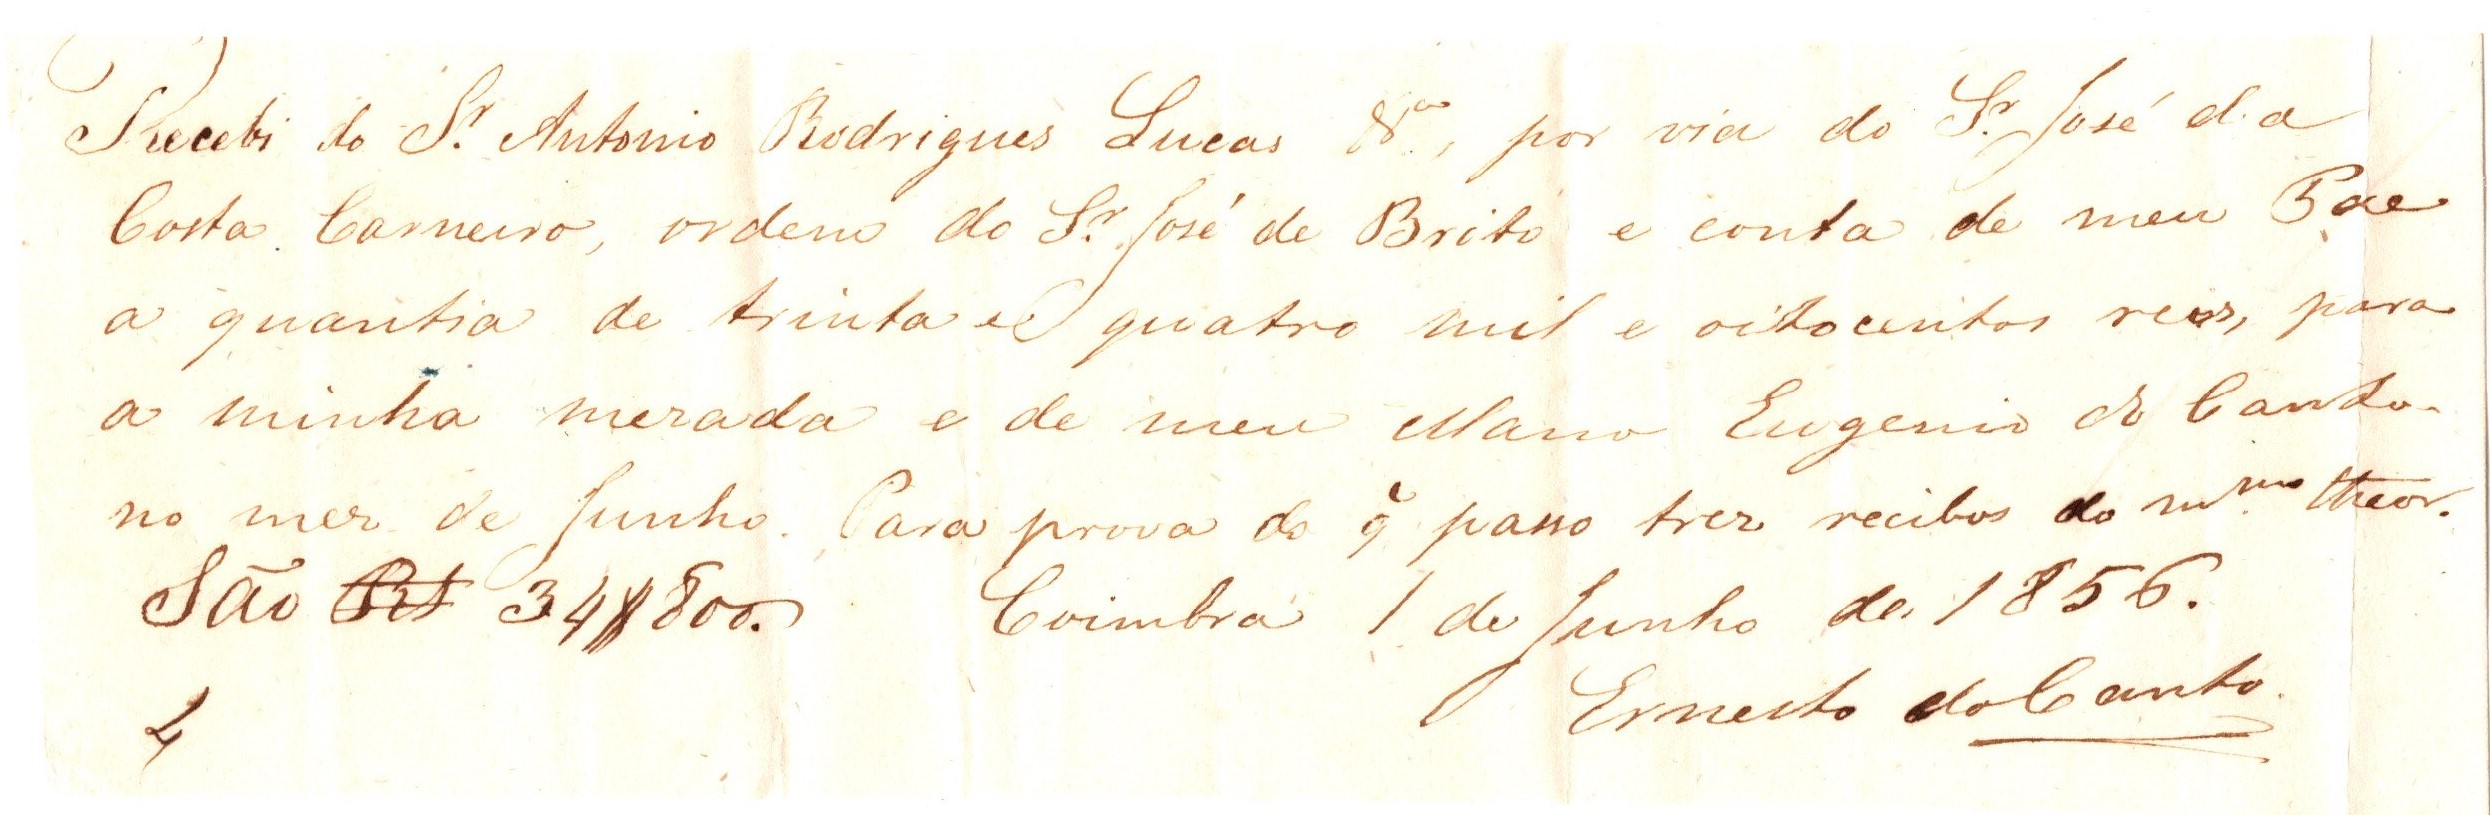 Recebi do Sr. Antonio Rodrigues Lucas, por via do Sr. José da
Costa Carneiro, ordem do Sr. José de Brito e conta de meu Pae
a quantia de trinta e quatro mil e oitocentos reis, para
a minha mezada e de meu Mano Eugenio do Canto
no mez de Junho. Para prova do q̃ passo trez recibos do mmo theor.
São Rs 34$800. Coimbra 1 de Junho de 1856.
Ernesto do Canto.
4